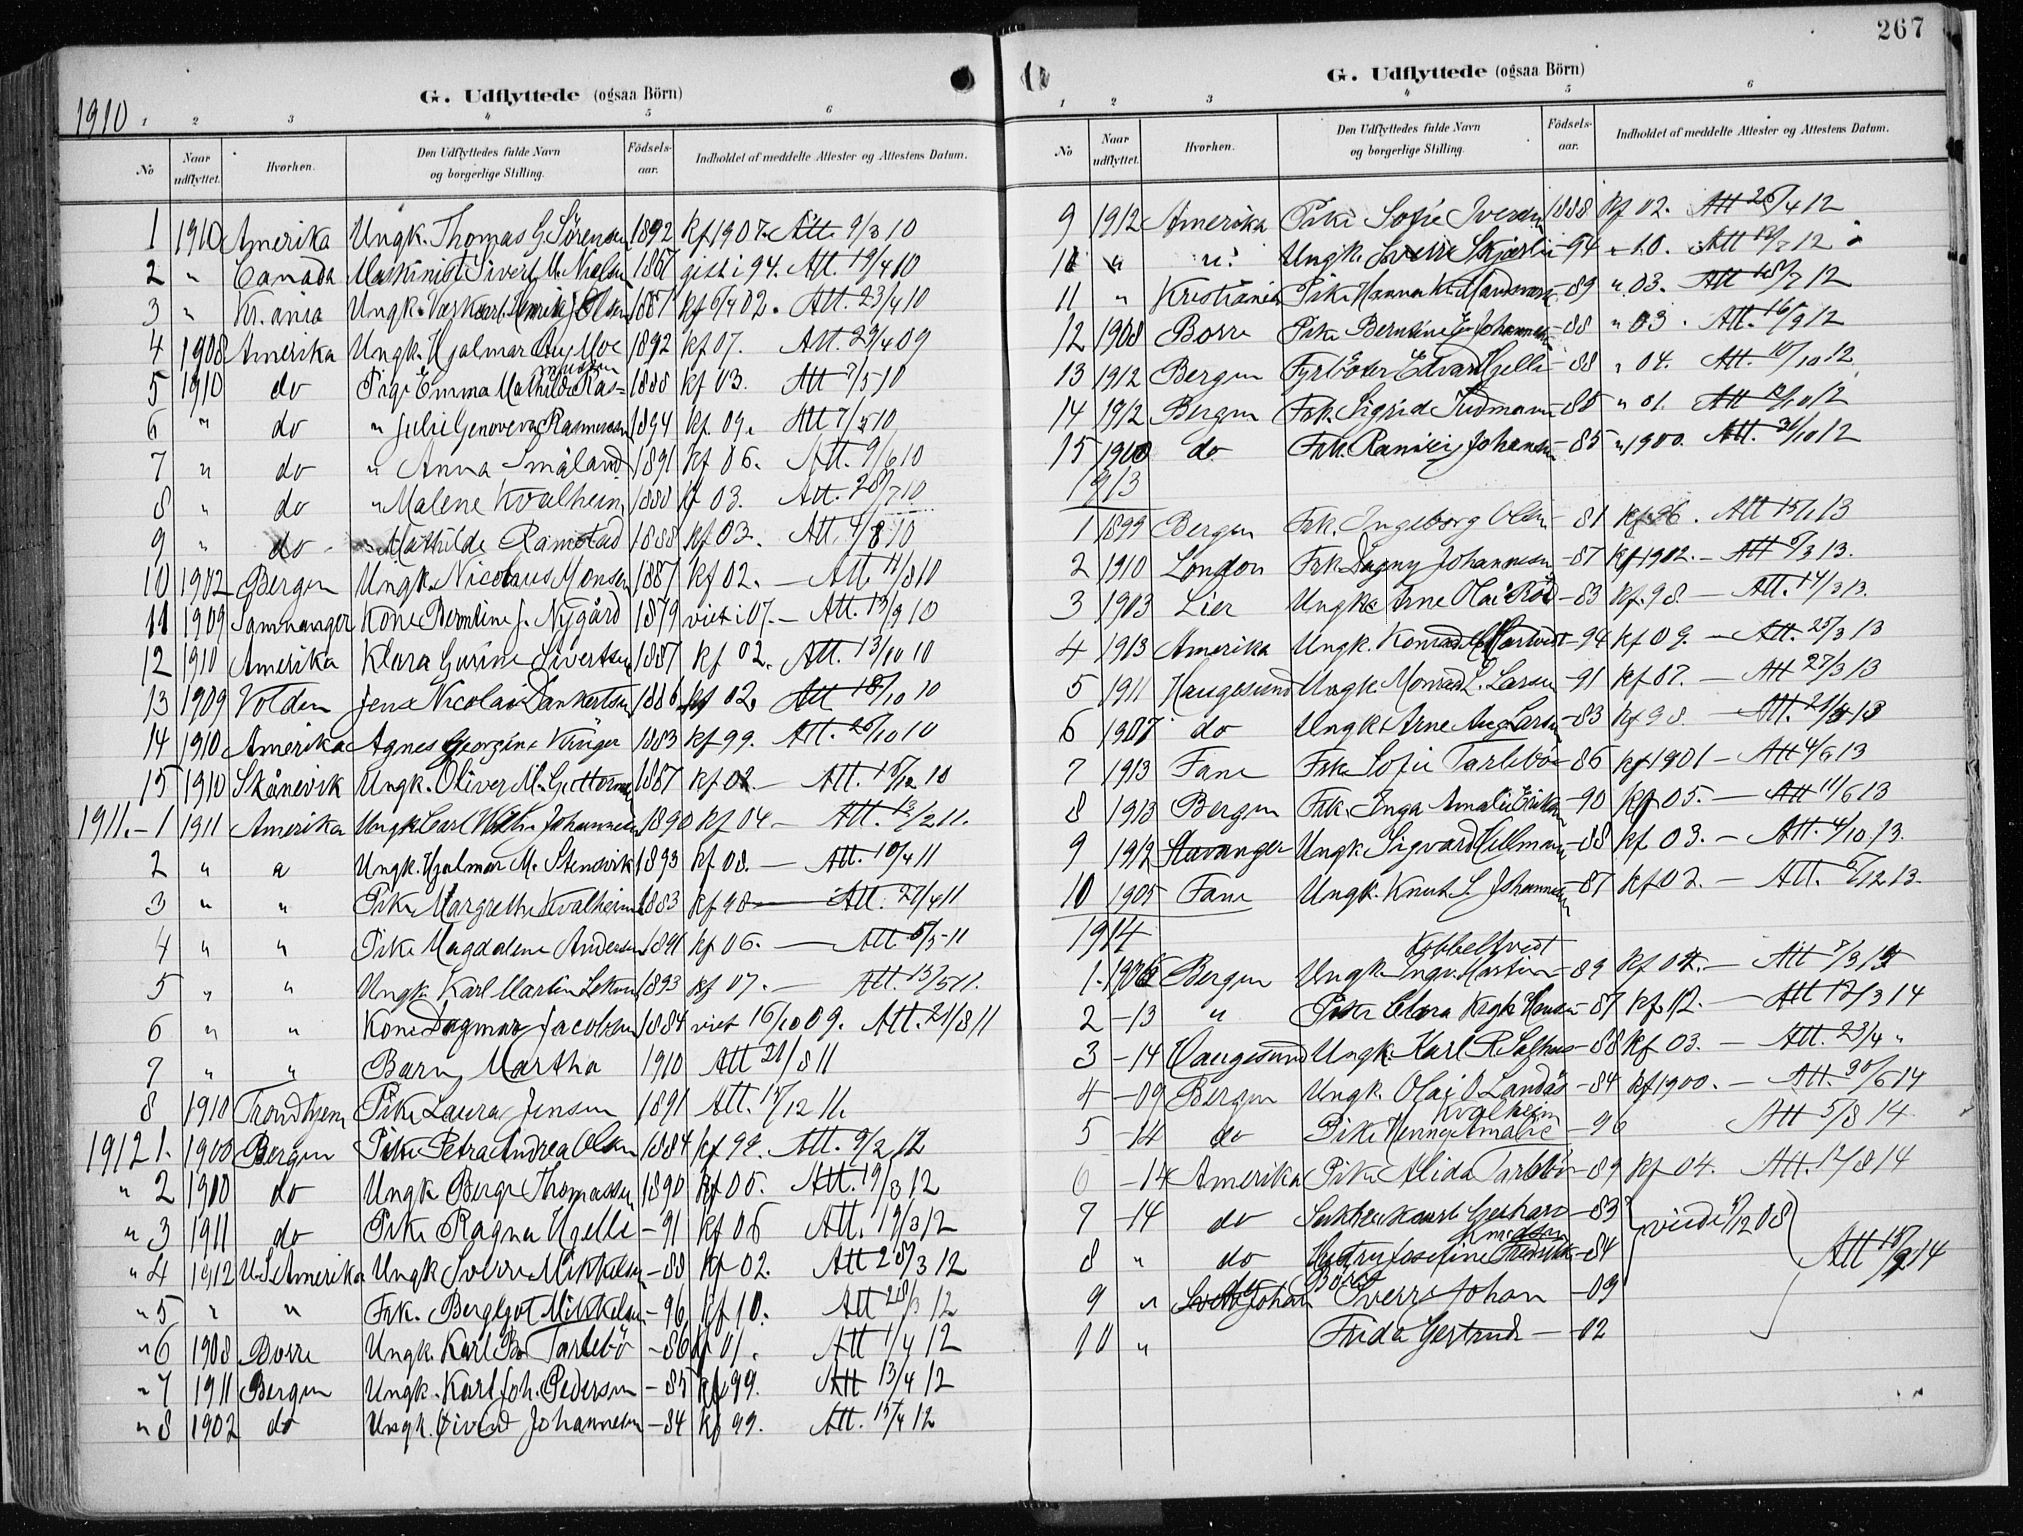 G. Udflyttede (ogsaa Börn)
1910
1 2 3 4 5 6
No Naar udflyttet. Hvorhen. Den Udflyttedes fulde Navn og borgerlige Stilling. Födsels-aar. Indholdet af meddelte Attester og Attestens Datum.
1 1910 Amerika Ungk. Thomas G. Sörensen 1892 kf 1907. Att. 9/3 10
2 " Canada Maskinist Sivert M. Nielsen 1867 gift i 94. Att. 19/4 10
3 " Kr.ania Ungk. Henrik J. Olsen 1887 kf 6/4 02. Att. 23/4 10
4 1908 Amerika Ungk. Hjalmar Aug Moe 1892 kf 07. Att. 29/4 09
5 1910 do Pige Emma Mathilde Ras= mussen 1888 kf 03. Att 7/5 10
6 " do " Julie Genoveva Rasmussen 1894 kf. 09. Att 7/5 10
7 " do " Anna Småland 1891 kf 06. Att. 9/6 10
8 " do " Malene Kvalheim 1888 kf 03. Att. 28/7 10
9 " do " Mathilde Ramstad 1888 kf 03. Att. 4/8 10
10 1902 Bergen Ungk. Nicolaus Monsen 1887 kf 02. — Att. 11/8 10
11 1909 Samnanger Kone Berntine J. Nygård 1879 viet i 07. — Att. 13/9 10
12 1910 Amerika Klara Gurine Sivertsen 1887 kf 02. Att. 13/10 10
13 1909 Volden Jens Nicolai Dankertsen 1886 kf 02. Att 18/10 10
14 1910 Amerika Agnes Georgine Krüger 1883 kf 99. Att. 26/10 10
15 1910 Skånevik Ungk. Oliver M. Guttormsen 1887 kf 02. — Att. 18/12 10
1911. — 1 1911 Amerika Ungk. Carl Wilh. Johannesen 1890 kf 04 — Att. 13/2 11.
2 " " Ungk. Hjalmar M. Stensvik 1893 kf 08. — Att. 10/4 11
3 " " Pike Margrethe Kvalheim 1883 kf 98 — Att. 27/4 11
4 " " Pike Magdalene Andersen 1891 kf 06. — Att. 5/5 11
5 " " Ungk. Karl Martin 1893 kf 07. — Att. 15/5 11.
6 " " Kone Dagmar Jacobsen 1884 viet 16/10 09. Att. 21/8 11
7 " " Barn Martha 1910 Att 21/8 11
8 1910 Trondhjem Pike Laura Jensen 1891 Att. 15/12 11.
1912 1. 1908 Bergen Pike Petra Andrea Olsen 1884 kf 99. Att. 9/2 12
" 2 1910 do Ungk Berge Thomassen 1890 kf 05. Att. 19/3 12
" 3 1911 do Pike Ragna Hjelle - 91 kf 06 Att. 19/3 12
" 4 1912 U.S. Amerika Ungk Sverre Mikkelsen - 88 kf 02. Att 28/3 12
" 5 " " Frk. Bergljot Mikkelsen - 96 kf 10. Att 28/3 12
" 6 1908 Borre Ungk. Karl B. Tarlebö - 86 kf 01. Att 1/4 12
" 7 1911 Bergen Ungk. Karl Joh. Pedersen - 85 kf 99. Att 13/4 12
" 8 1902 do Ungk. Eivind Johannesen - 84 kf 99. Att. 15/4 12
267
G. Udflyttede (ogsaa Börn)
1 2 3 4 5 6
No Naar udflyttet. Hvorhen. Den Udflyttedes fulde Navn og borgerlige Stilling. Födsels-aar. Indholdet af meddelte Attester og Attestens Datum.
9 1912 Amerika Pike Sofie Iversen 1888 kf 02. Att 26/4 12
10 " " Ungk. Sverre Skjerlie - 94 " 10. Att 13/7 12
11 " Kristiania Pike Hanna K. - 89 " 03. Att 18/7 12
12 1908 Borre Pike Berntine E. Johannesen - 88 " 03. Att. 16/9 12
13 1912 Bergen Fyrböter Edvard Hjelle - 88 " 04. Att. 10/10 12
14 1912 Bergen Frk. Sigrid Tidemann - 86 " 01. Att 12/10 12
15 1910 do Frk. Ranveig Johansen - 85 " 1900. Att. 26/10 12
1913
1 1899 Bergen Frk. Ingeborg Olsen - 81 kf 96. Att 15/1 13
2 1910 London Frk Dagny Johannesen - 87 kf 1902. — Att 8/3 13.
3 1903 Lier Ungk. Arne Olai Röd - 83 kf. 98. — Att. 14/3 13.
4 1913 Amerika Ungk. Konrad - 94 kf 09. — Att. 25/3 13
5 1911 Haugesund Ungk. Monrad L. Larsen - 91 kf 07. — Att 27/3 13
6 1907 do Ungk Arne Aug Larsen - 83 kf 98. — Att. 21/4 13
7 1913 Fane Frk. Sofie Tarlebö - 86 kf 1901 — Att 4/6 13
8 1913 Bergen Frk. Inga Amalie Eriksen - 90 kf 05. — Att 11/6 13
9 1912 Stavanger Ungk. Sigvard Hellmann - 88 kf 03. — Att. 4/10 13.
10 1905 Fane Ungk. Knut L Johannesen - 87 kf 02. — Att. 9/12 13.
1914
1. 1906 Bergen Ungk. Ingv. Martin Kobbeltvedt - 89 kf 04. — Att 7/3 14
2 - 13 " Pike Clara Hansen - 87 kf. 02. — Att 12/3 14
3 - 14 Haugesund Ungk. Karl R. Salhus - 88 kf 03. — Att. 23/4 "
4 - 09 Bergen Ungk. Olai O Landås - 84 kf 1900. — Att. 30/6 14
5 - 14 do Pike Henny Amalie Kvalheim - 96 Att 5/8 14
6 - 14 Amerika Pike Alida Tarlebö - 89 kf 04. Att. 12/8 14
7 - 14 do Gerhard Knudsen - 83 viede 9/12 08
8 " do Hustru Josefine Fredrikke - 84 Att 18/9 14
9 " Börn Sverre Johan - 09
10 " Frida Gertrud — - 02